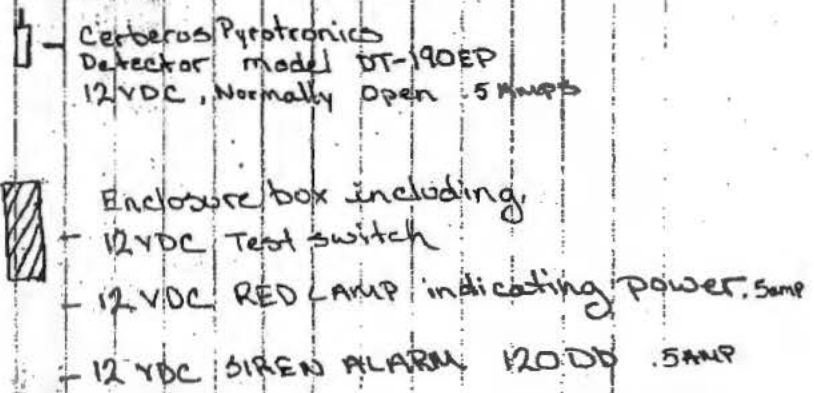 - Cerberus Pyrotronics
Detector model DT-190EP
12 VDC, Normally Open .5 AMPS
Enclosure box including,
- 12 VDC Test switch
- 12 VDC RED LAMP indicating power .5amp
- 12 VDC SIREN ALARM 120 DD .5AMP